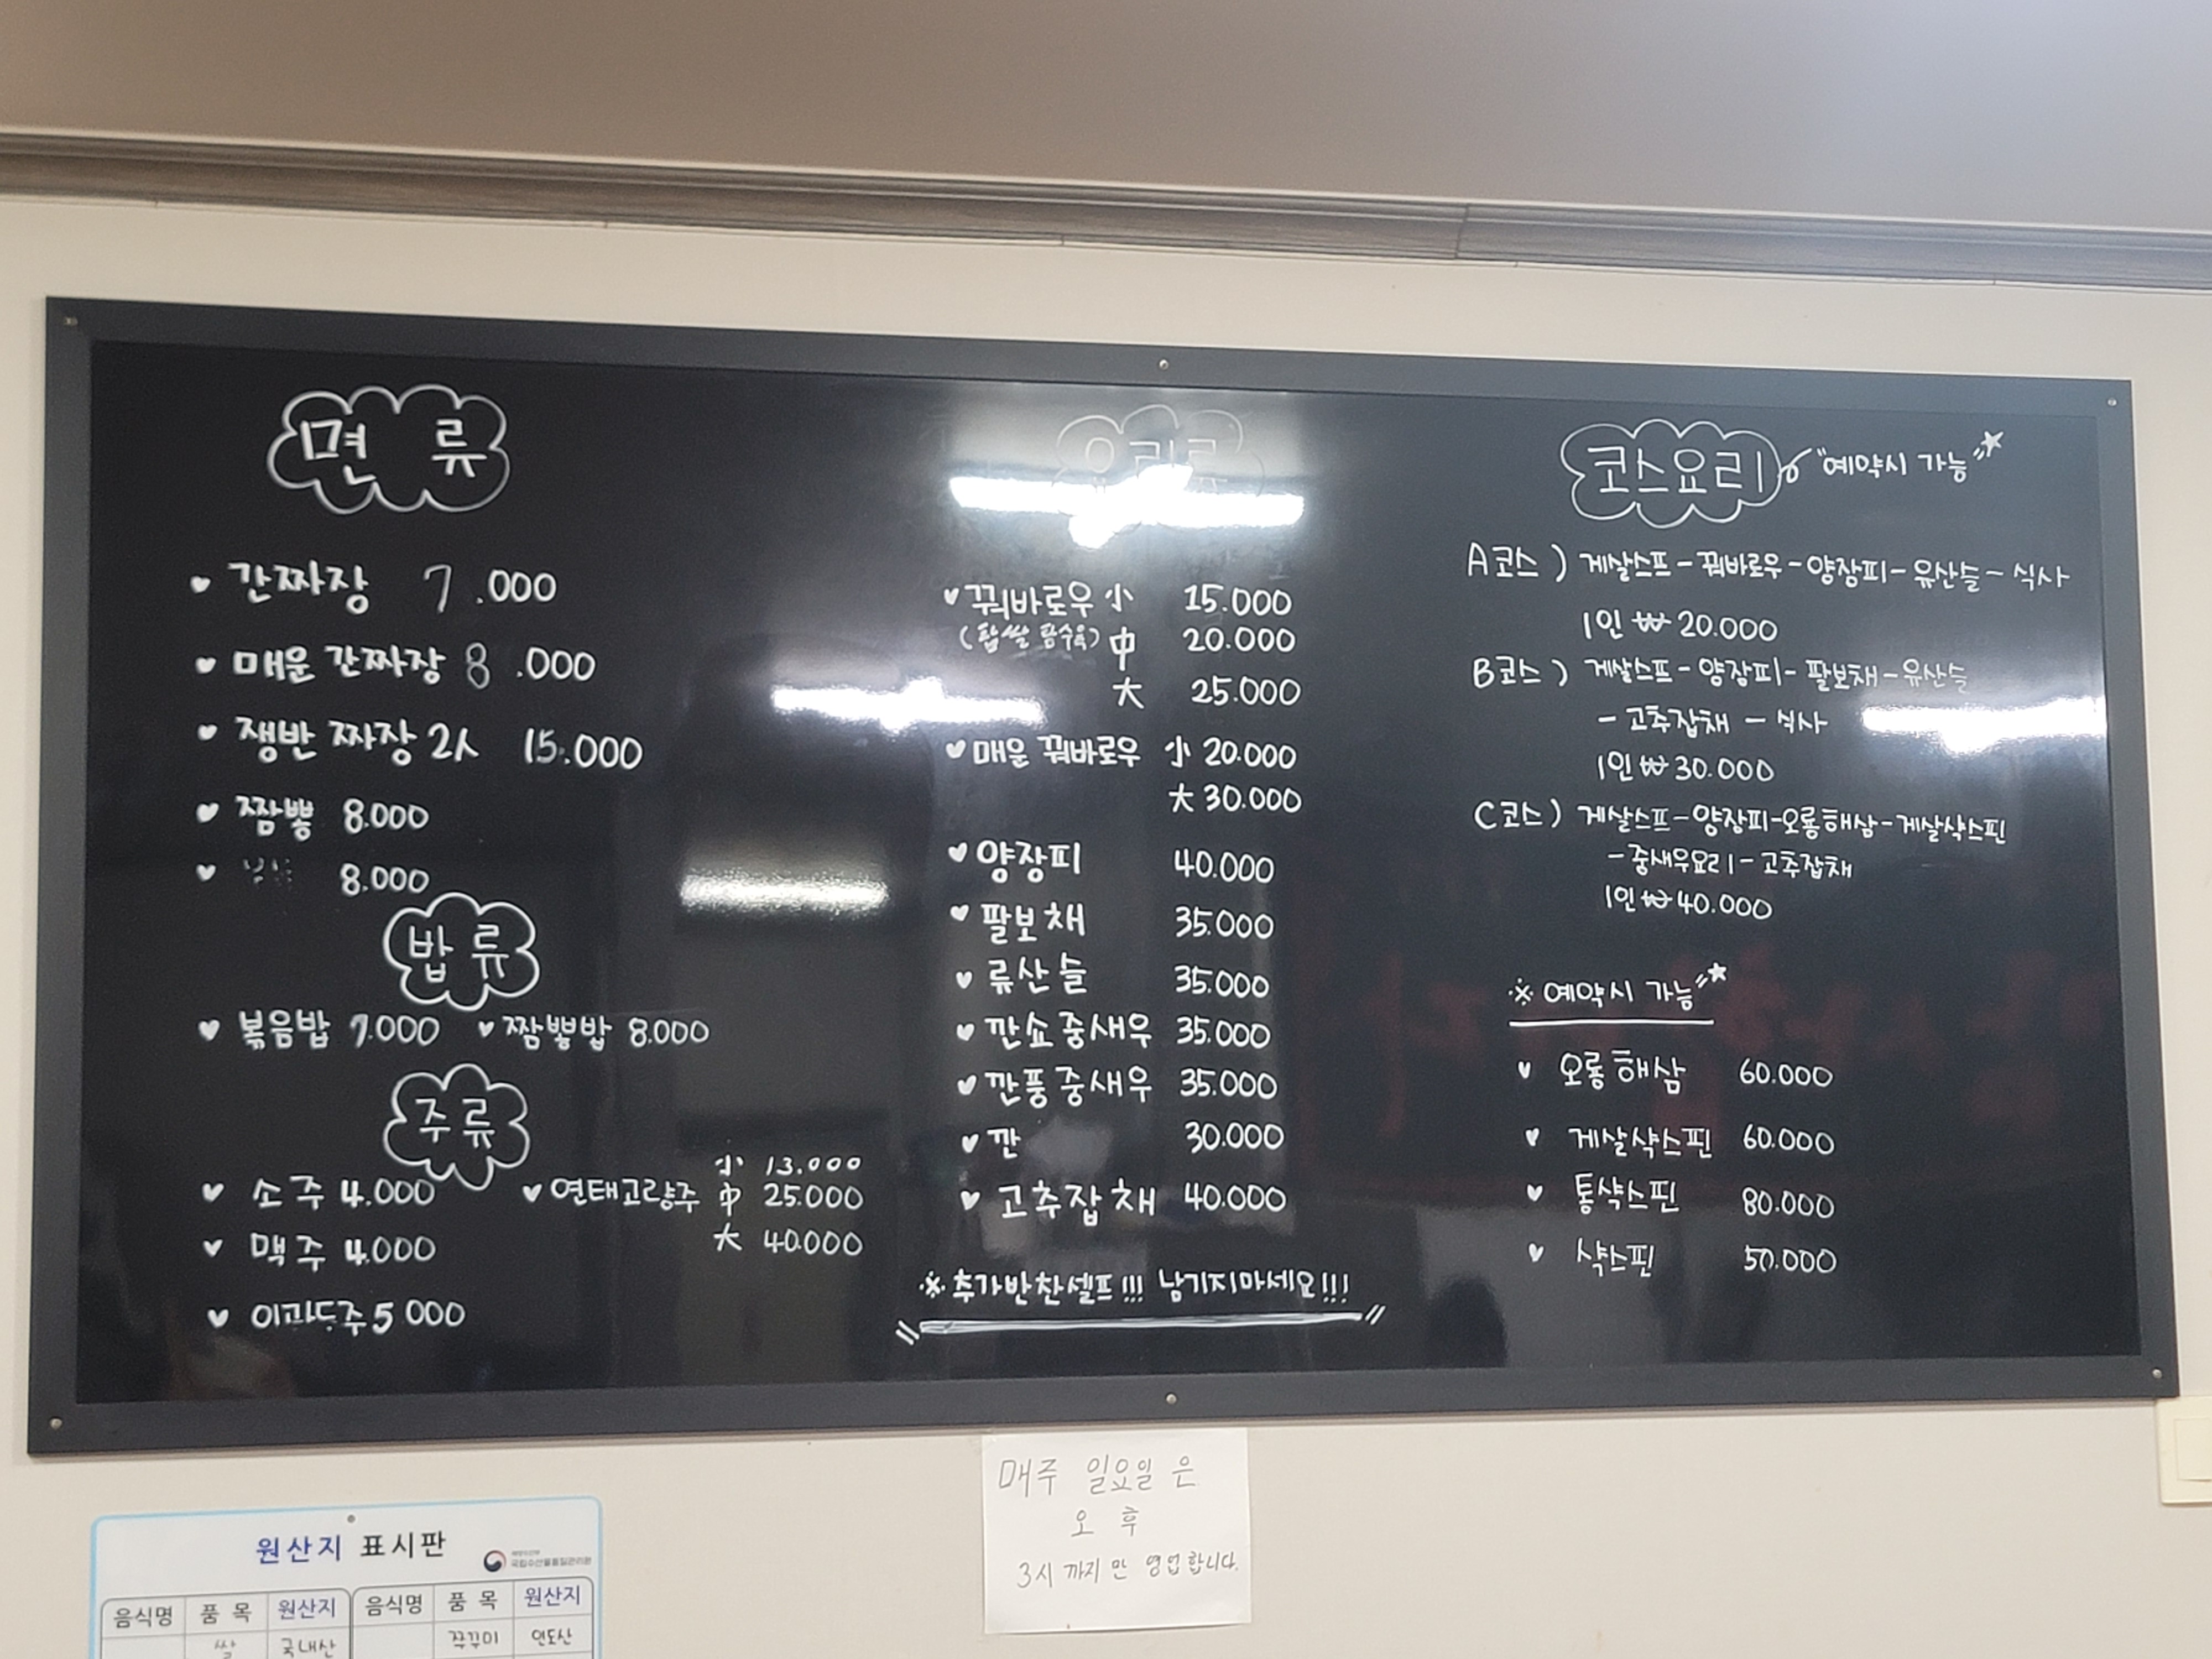 면 류
간짜장 7.000
매운 간짜장 8.000
쟁반 짜장 2人 15.000
짬뽕 8.000
8.000
밥 류
볶음밥 7.000 짬뽕밥 8.000
주 류
소주 4.000
맥주 4.000
이과두주 5 000
연태고량주 小 13.000
中 25.000
大 40.000
요리류
꿔바로우 小 15.000
(찹쌀 탕수육) 中 20.000
大 25.000
매운 꿔바로우 小 20.000
大 30.000
양장피 40.000
팔보채 35.000
류산슬 35.000
깐쇼중새우 35.000
깐풍중새우 35.000
깐 30.000
고추잡채 40.000
※ 추가반찬셀프!!! 남기지마세요!!!
코스요리 "예약시 가능"
A코스) 게살스프-꿔바로우-양장피-유산슬-식사
1인 ₩ 20.000
B코스) 게살스프-양장피-팔보채-유산슬
-고추잡채-식사
1인 ₩ 30.000
C코스) 게살스프-양장피-오룡해삼-게살샥스핀
-중새우요리-고추잡채
1인 ₩ 40.000
※ 예약시 가능
오룡해삼 60.000
게살샥스핀 60.000
통샥스핀 80.000
샥스핀 50.000
매주 일요일은
오후
3시 까지만 영업합니다.
원산지 표시판
국립수산물품질관리원
음식명 품 목 원산지 음식명 품 목 원산지
쌀 국내산 쭈꾸미 인도산